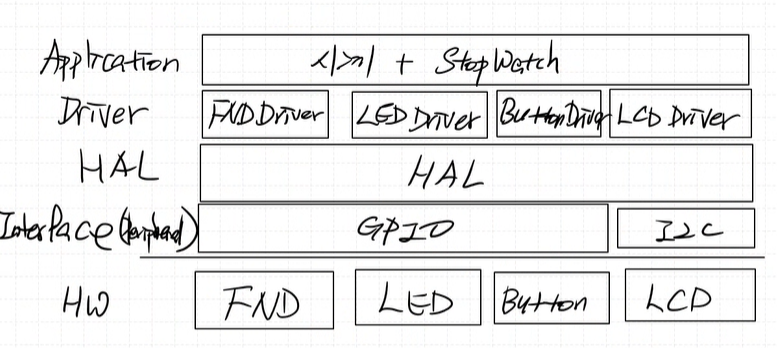 Application 시계 + StopWatch
Driver FND Driver LED Driver Button Driver LCD Driver
HAL HAL
Interface (Peripheral) GPIO I2C
HW FND LED Button LCD